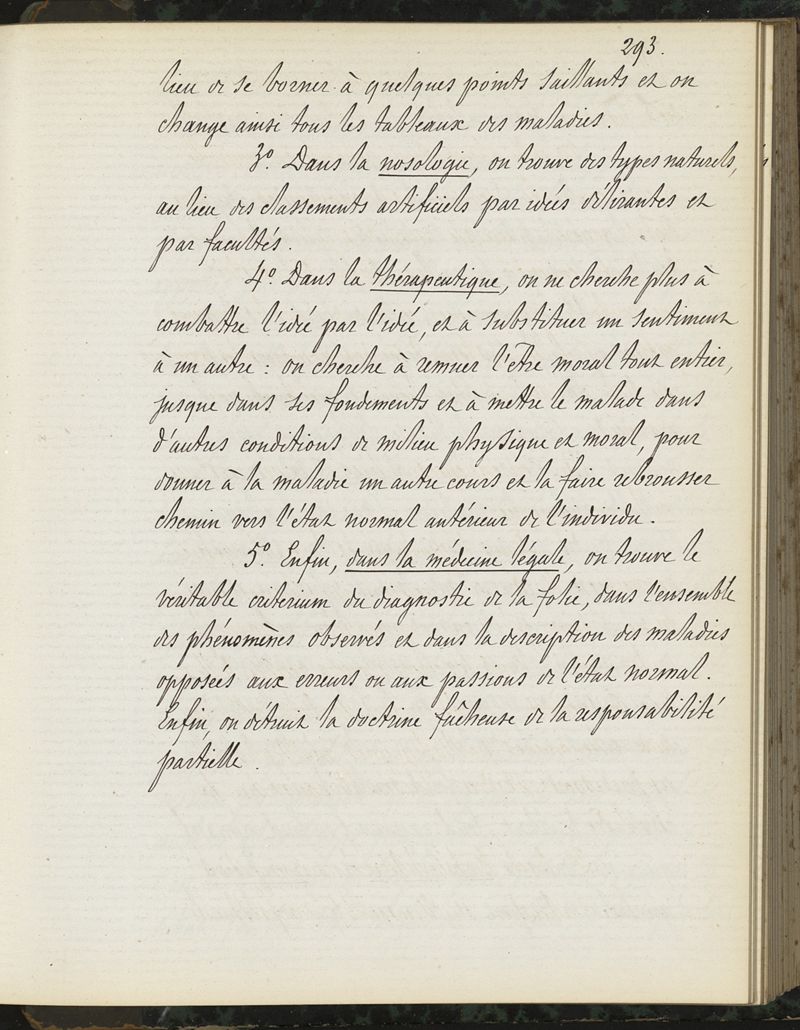 293.
lieu de se borner à quelques points saillants et on
change ainsi tous les tableaux des maladies.
3º. Dans la nosologie, on trouve des types naturels,
au lieu des classements artificiels par idées délirantes et
par facultés.
4º. Dans la thérapeutique, on ne cherche plus à
combattre l'idée par l'idée, et à substituer un sentiment
à un autre : on cherche à remuer l'être moral tout entier,
jusque dans ses fondements et à mettre le malade dans
d'autres conditions de milieu physique et moral, pour
donner à la maladie un autre cours et la faire rebrousser
chemin vers l'état normal antérieur de l'individu.
5º. Enfin, dans la médecine légale, on trouve le
véritable criterium du diagnostic de la folie, dans l'ensemble
des phénomènes observés et dans la description des maladies
opposées aux erreurs ou aux passions de l'état normal.
Enfin, on détruit la doctrine fâcheuse de la responsabilité
partielle.